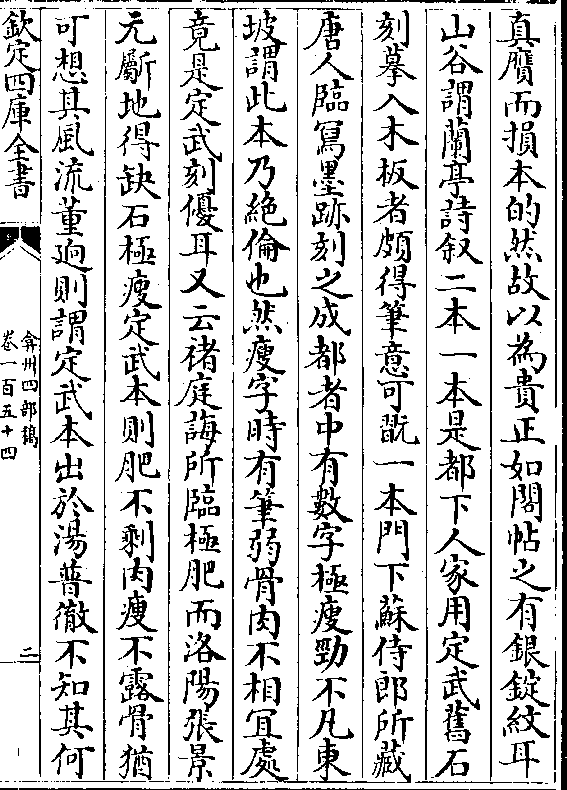 真贋而損本的然故以為貴正如閣帖之有銀錠紋耳
山谷謂蘭亭詩叙二本一本是都下人家用定武舊石
刻摹入木板者頗得筆意可翫一本門下蘇侍郎所藏
唐人臨寫墨跡刻之成都者中有數字極瘦勁不凡東
坡謂此本乃絶倫也然瘦字時有筆弱骨肉不相宜處
竟是定武刻優耳又云禇庭誨所臨極肥而洛陽張景
元斸地得缺石極瘦定武本則肥不剩肉瘦不露骨猶
可想其風流董逈則謂定武本出於湯普徹不知其何
欽定四庫全書
弇州四部稿
卷一百五十四
二